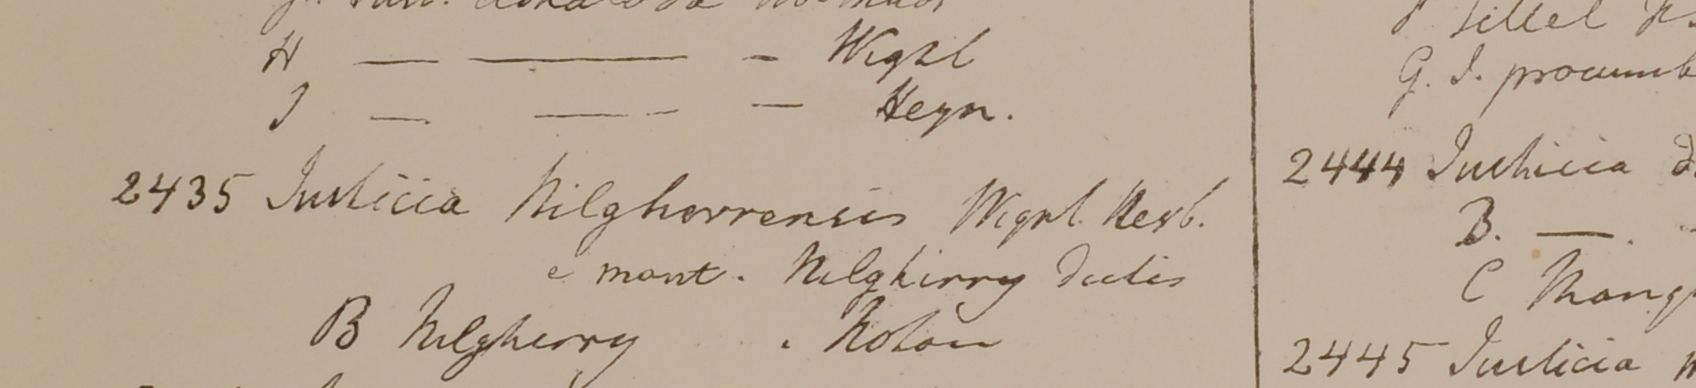 H — — — Wight
J — — — Heyn.
2435 Justicia Nilgherrensis Wight Herb.
e mont. Nilghirry dictis
B Nilgherry . Noton
G. J. procumb
2444 Justicia d
B. — .
C Mang
2445 Justicia